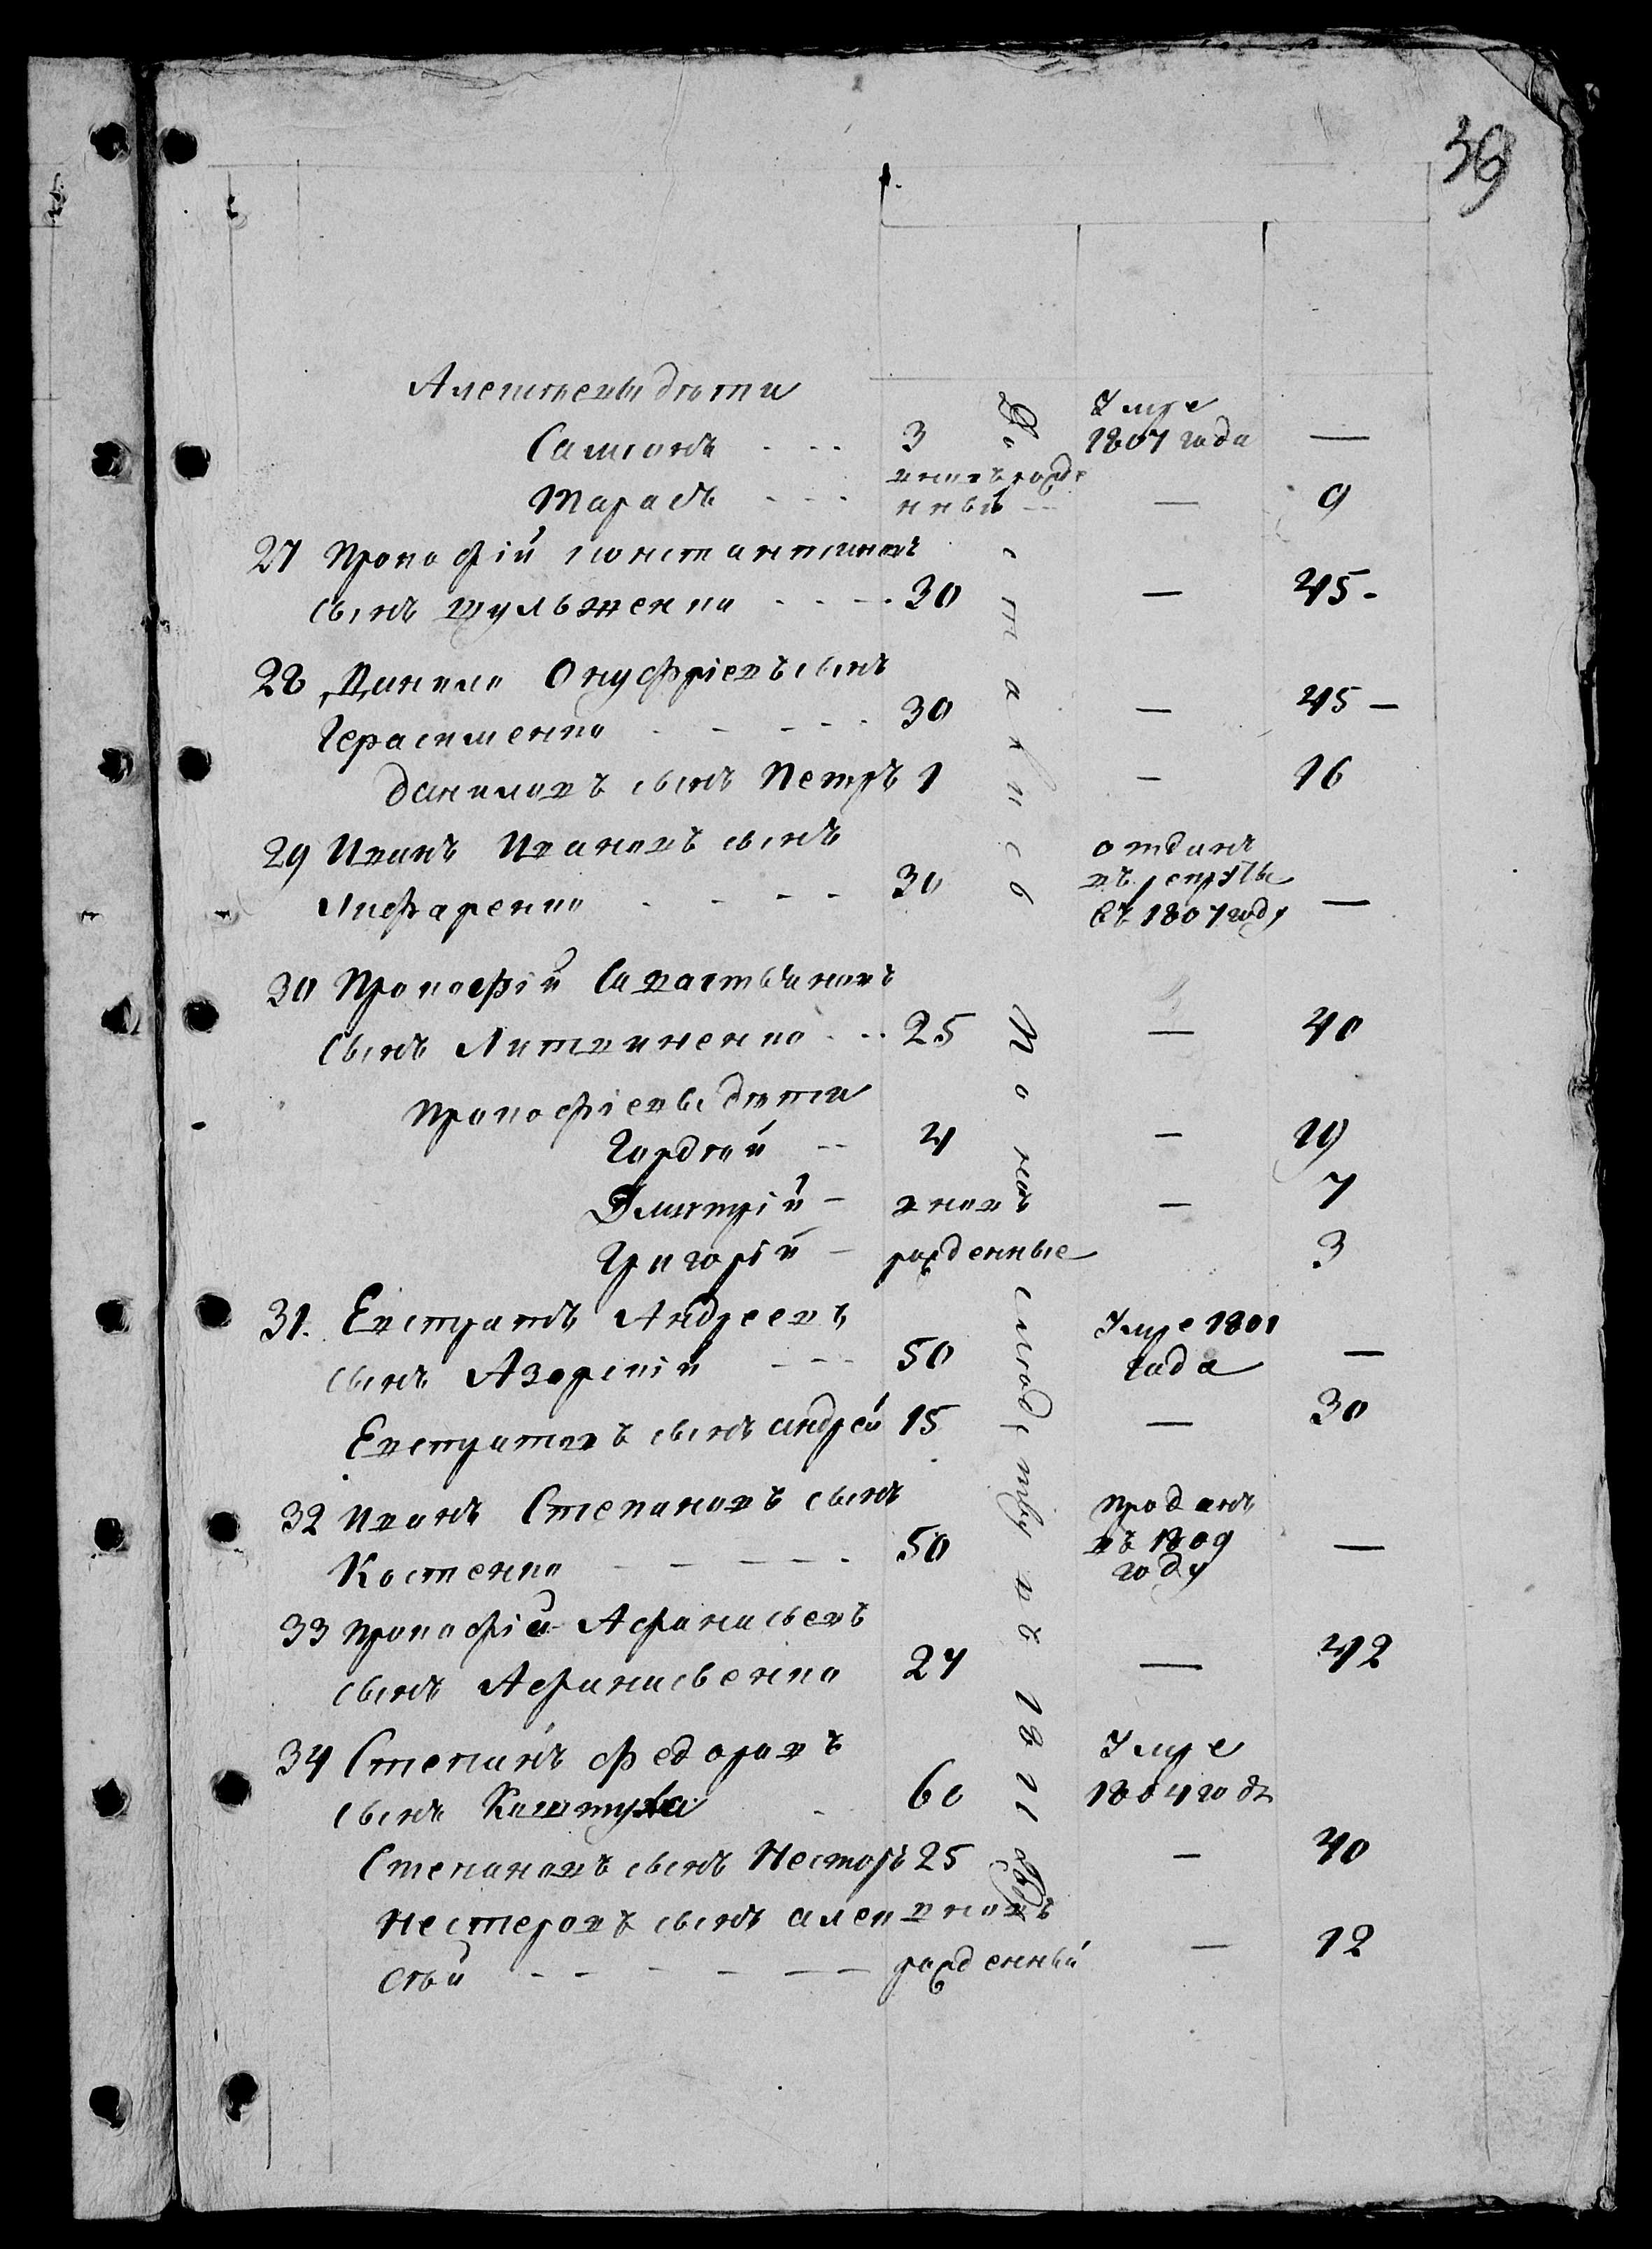 39
Алексѣевы дѣти
Самсонъ - - - 3 Умре 1807 года —
Тарасъ - - - вновьрожденный — 9
27 Прокофій Константиновъ
сынъ Шульженко - - - - 30 — 45 -
28 Данило Онуфріевъ сынъ
Герасименко - - - - 30 — 45 —
Даниловъ сынъ Петръ 1 — 16
29 Иванъ Ивановъ сынъ
Лифаренко - - - - 30 отданъ въ рекруты въ 1807 году —
30 Прокофій Савастьяновъ
сынъ Литвиненко - - - 25 — 40
Прокофіевы дѣти
Гордѣй - - 4 — 19
Дмитрій - вновь — 7
Григорій - рожденные 3
31. Евстратъ Андреевъ
сынъ Азорскій - - - 50 Умре 1801 года —
Евстратовъ сынъ андрей 15 — 30
32 Иванъ Степановъ сынъ
Костенко - - - - - 50 проданъ въ 1809 году —
33 Прокофій Афанасьевъ
сынъ Афанасьенко 27 — 42
34 Степанъ Федоровъ
сынъ 60 Умре 1804 года
Степановъ сынъ Несторъ 25 — 40
Нестеровъ сынъ алек вновь
сѣй - - - - - - рожденный — 12
Оставшись
Поне
въ 1811 году